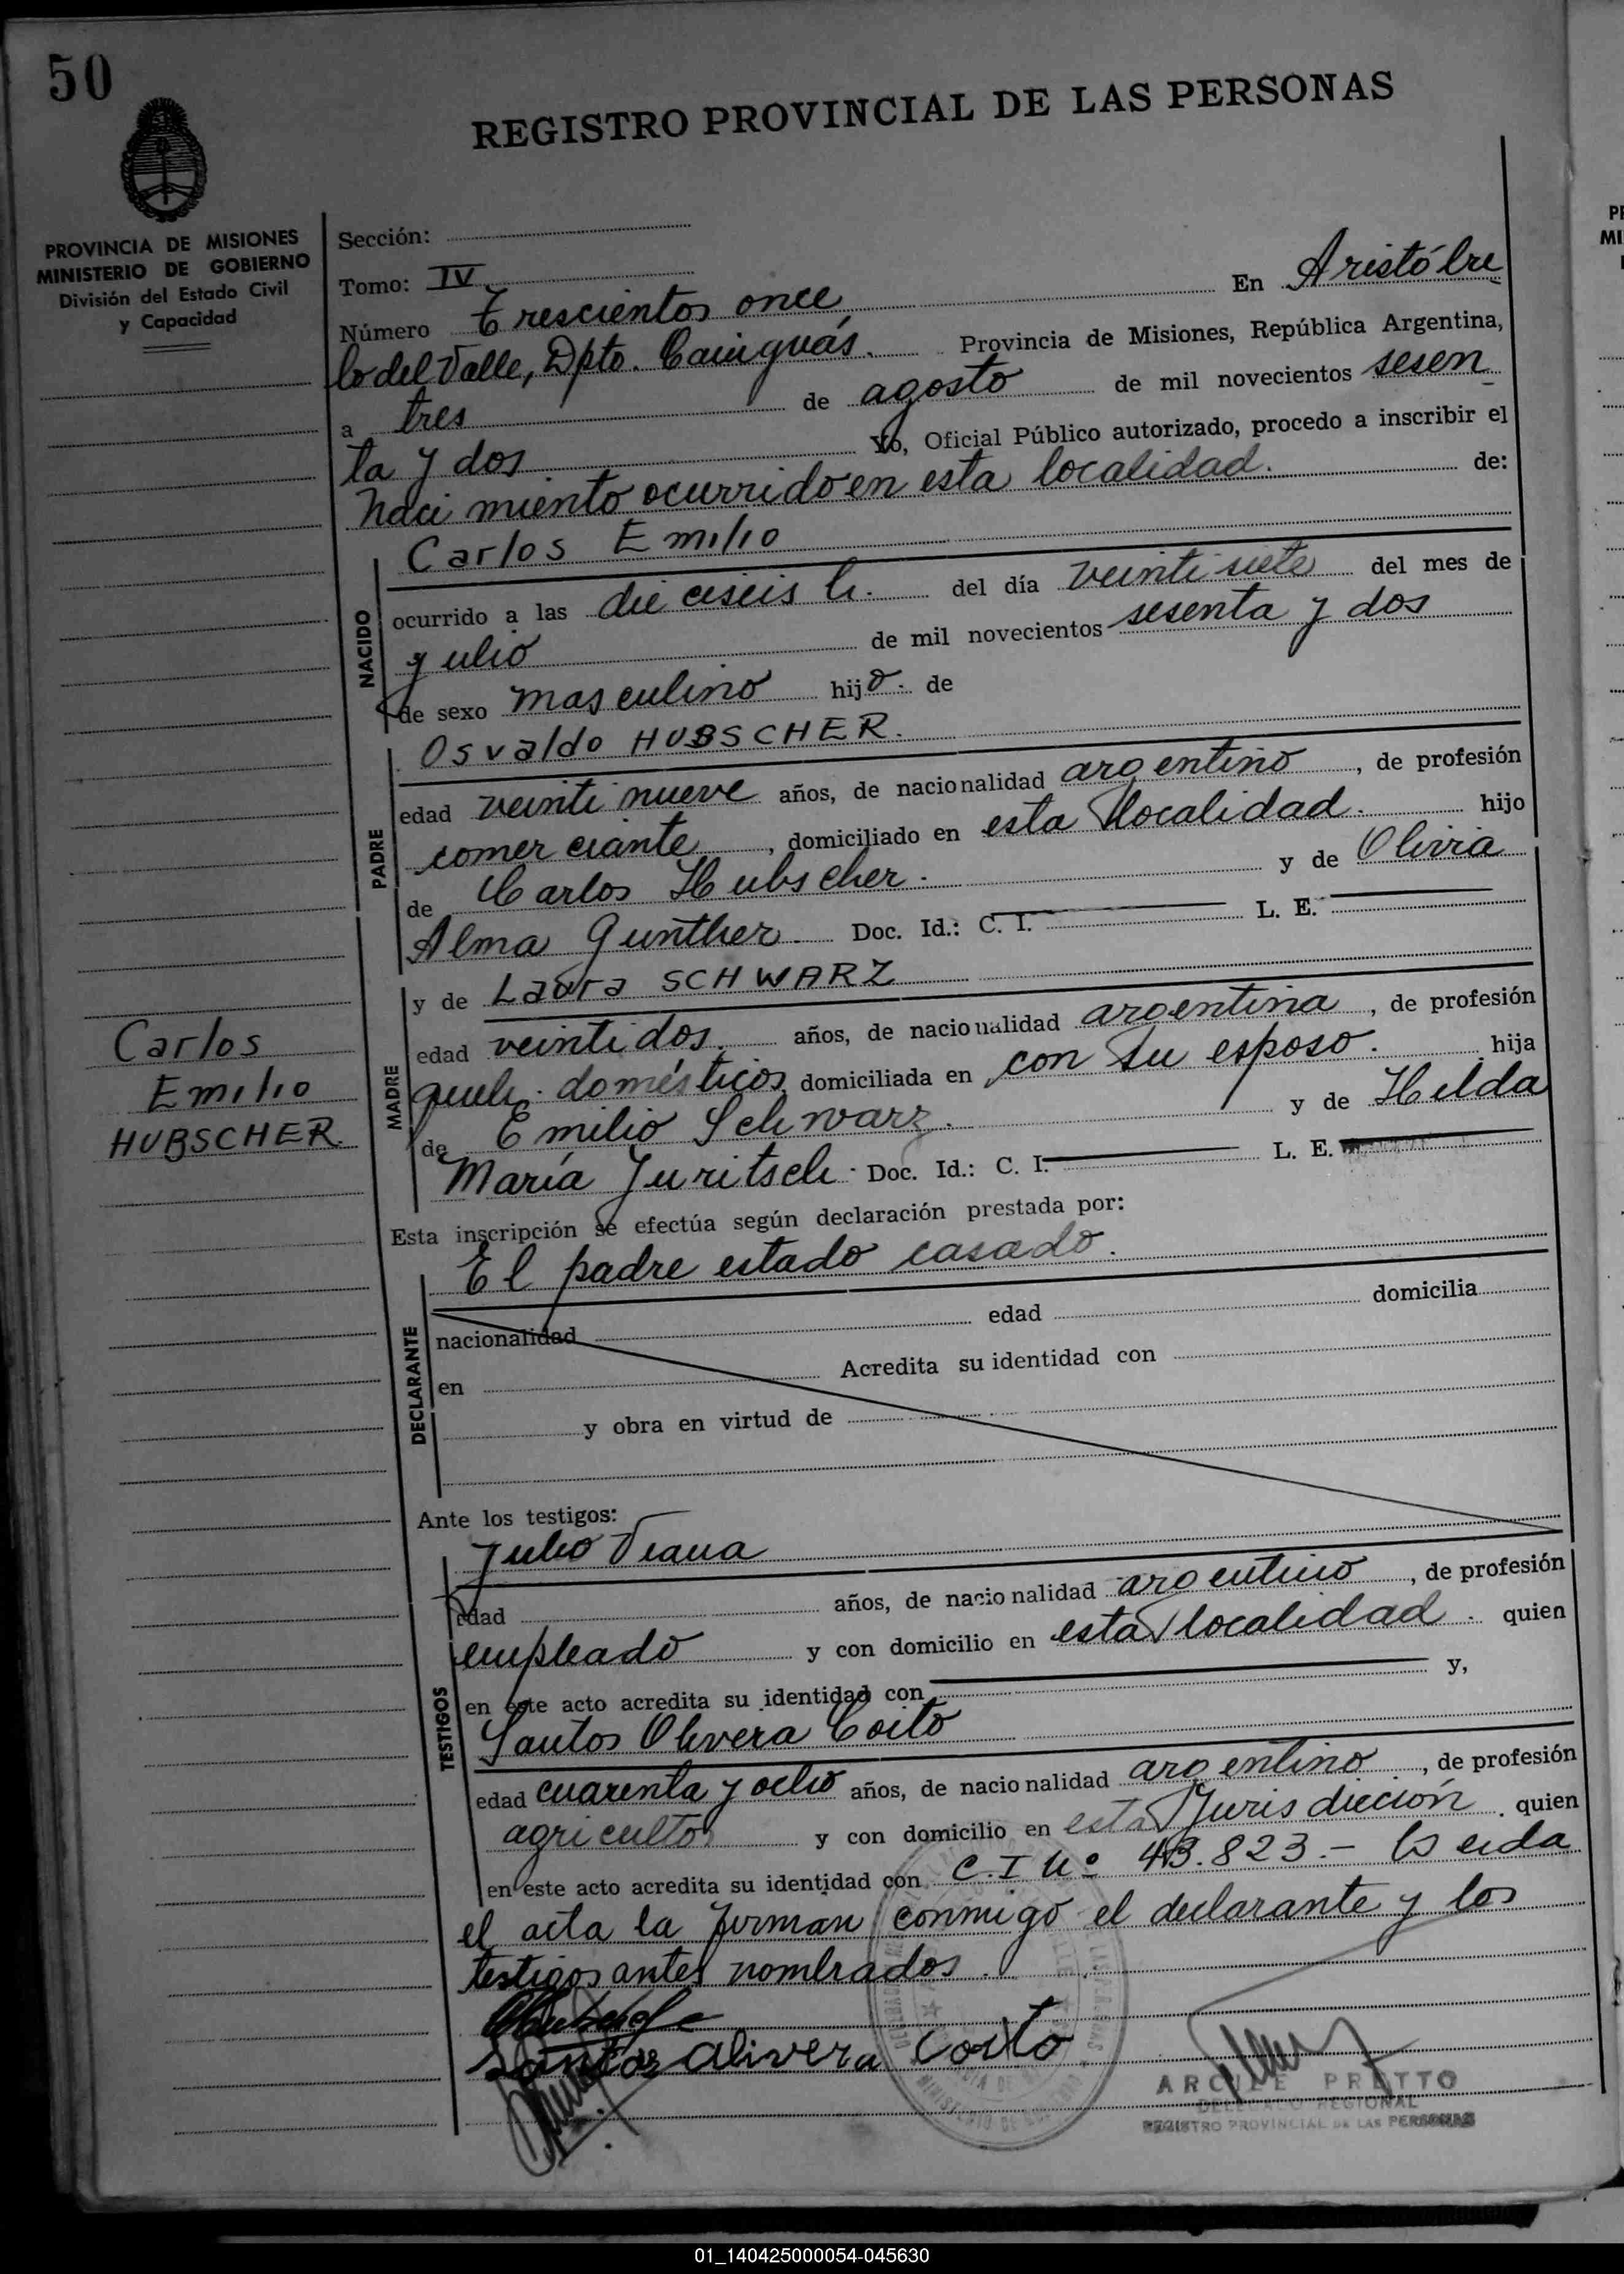 50
REGISTRO PROVINCIAL DE LAS PERSONAS
PROVINCIA DE MISIONES
MINISTERIO DE GOBIERNO
División del Estado Civil
y Capacidad
Sección:
Tomo: IV
Número Trescientos once En Aristóbu
lo del Valle, Dpto. Cainguás. Provincia de Misiones, República Argentina,
a tres de agosto de mil novecientos sesen
ta y dos Yo, Oficial Público autorizado, procedo a inscribir el
Naci miento ocurrido en esta localidad. de:
NACIDO
Carlos Emilio
ocurrido a las dieciseis h. del día veinti siete del mes de
julio de mil novecientos sesenta y dos
de sexo masculino hijo. de
PADRE
Osvaldo HUBSCHER.
edad veinti nueve años, de nacionalidad argentino, de profesión
comerciante, domiciliado en esta localidad. hijo
de Carlos Hubscher. y de Olivia
Alma Gunther. Doc. Id.: C. I. L. E.
MADRE
y de Laura SCHWARZ
edad veinti dos. años, de nacionalidad argentina, de profesión
queh. domésticos, domiciliada en con su esposo. hija
de Emilio Schwarz. y de Hilda
María Juritsch. Doc. Id.: C. I. L. E.
Carlos
Emilio
HUBSCHER.
Esta inscripción se efectúa según declaración prestada por:
DECLARANTE
El padre estado casado.
nacionalidad edad domicilia
en Acredita su identidad con
y obra en virtud de
Ante los testigos:
TESTIGOS
Julio Viana
edad años, de nacionalidad argentino, de profesión
empleado y con domicilio en esta localidad. quien
en este acto acredita su identidad con y,
Santos Olivera Coito
edad cuarenta y ocho años, de nacionalidad argentino, de profesión
agricultor y con domicilio en esta Jurisdicción. quien
en este acto acredita su identidad con C. I Nº 43.823.- Leida
el acta la firman conmigo el declarante y los
testigos antes nombrados.
Santos Alivera Coito
PRETTO
DELEGADO REGIONAL
REGISTRO PROVINCIAL DE LAS PERSONAS
01_140425000054-045630